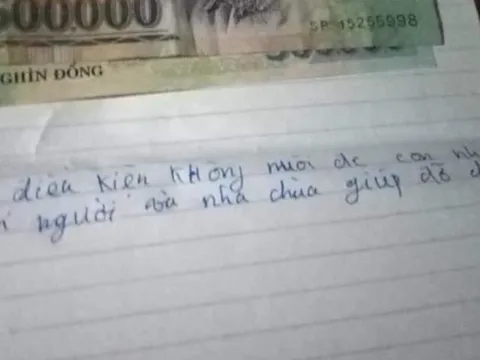 500.000
SP 15255998
NGHÌN ĐỒNG
điều kiện không nuôi dc con nh
người và nhà chùa giúp đỡ